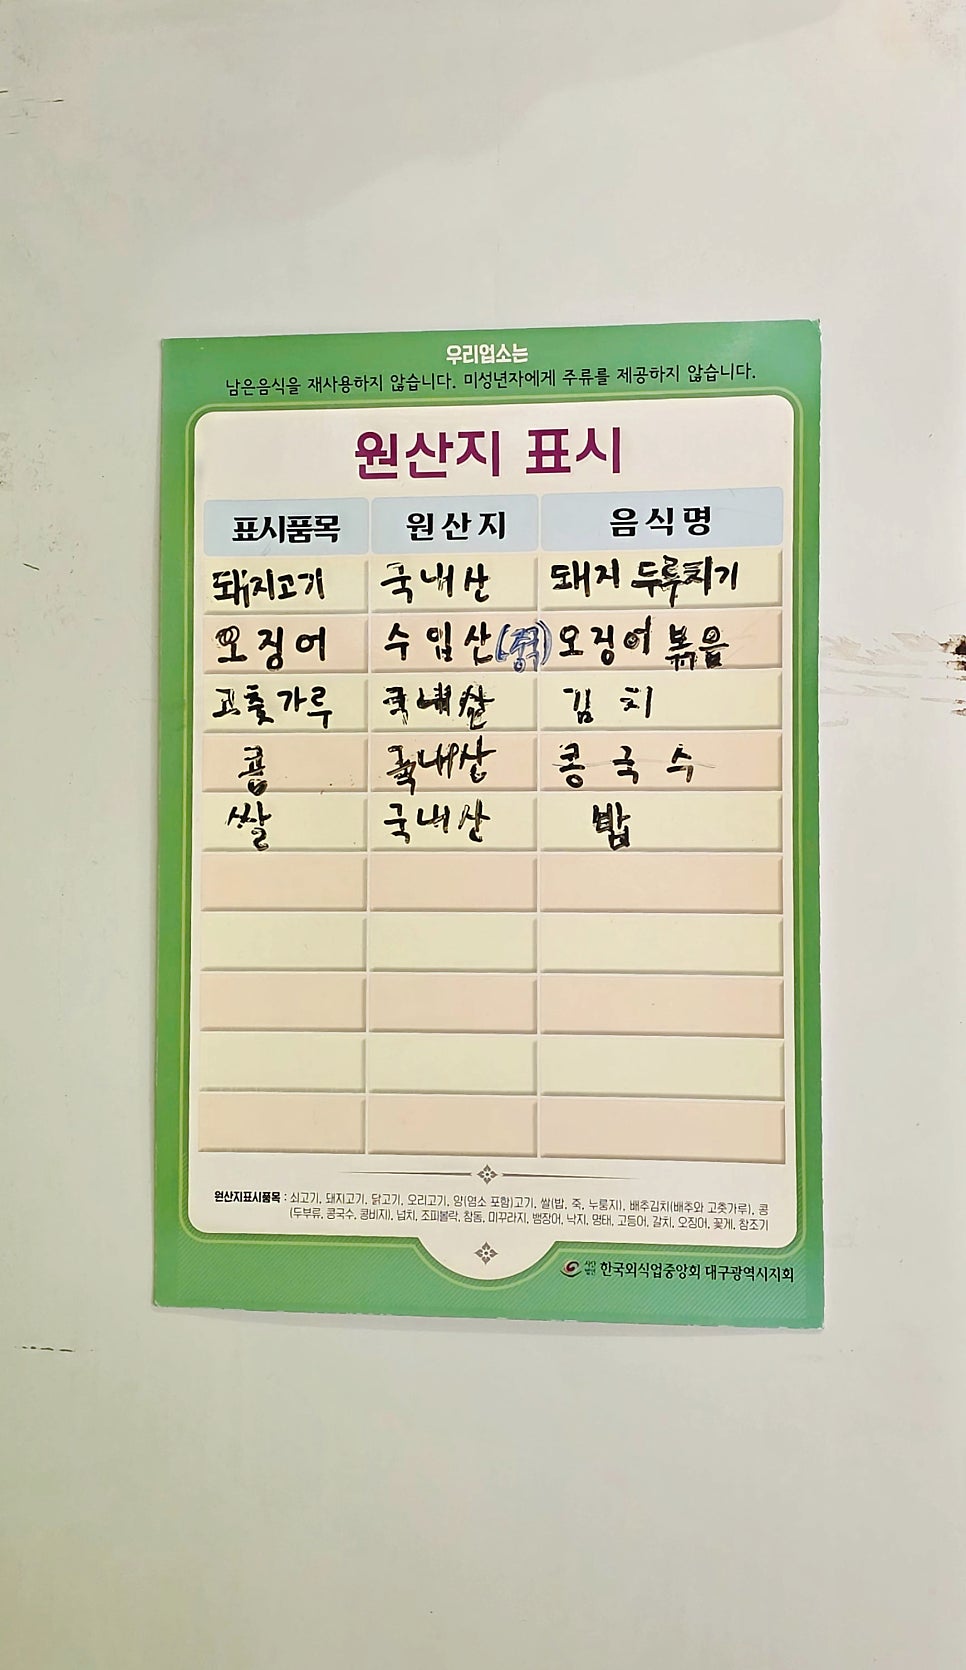 우리업소는
남은음식을 재사용하지 않습니다. 미성년자에게 주류를 제공하지 않습니다.
원산지 표시
표시품목 원산지 음식명
돼지고기 국내산 돼지 두루치기
오징어 수입산(중국) 오징어 볶음
고춧가루 국내산 김치
콩 국내산 콩국수
쌀 국내산 밥
원산지표시품목 : 쇠고기, 돼지고기, 닭고기, 오리고기, 양(염소 포함)고기, 쌀(밥, 죽, 누룽지), 배추김치(배추와 고춧가루), 콩
(두부류, 콩국수, 콩비지), 넙치, 조피볼락, 참돔, 미꾸라지, 뱀장어, 낙지, 명태, 고등어, 갈치, 오징어, 꽃게, 참조기
사단법인 한국외식업중앙회 대구광역시지회